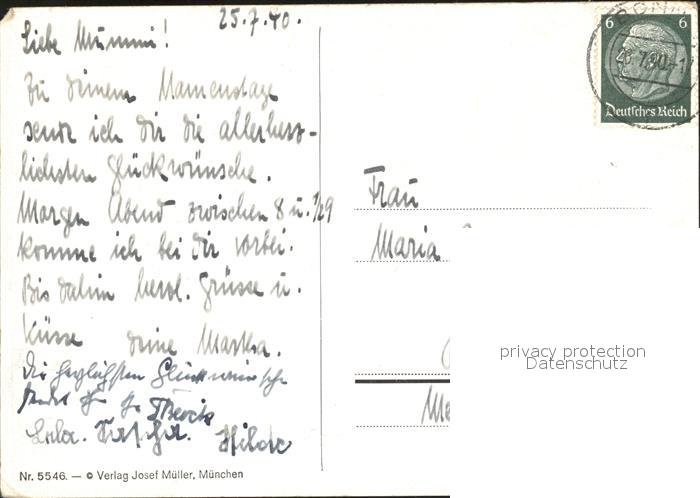 25.7.40.
Liebe Mummi!
Zu Deinem Namenstage
sende ich Dir die allerherz-
lichsten Glückwünsche.
Morgen Abend zwischen 8 u. 1/29
komme ich bei Dir vorbei.
Bis dahin herzl. Grüsse u.
Küsse Deine Martha.
Die herzlichsten Glückwünsche
Hilde
Nr. 5546. — © Verlag Josef Müller, München
6 6
Deutsches Reich
Frau
Maria
privacy protection
Datenschutz